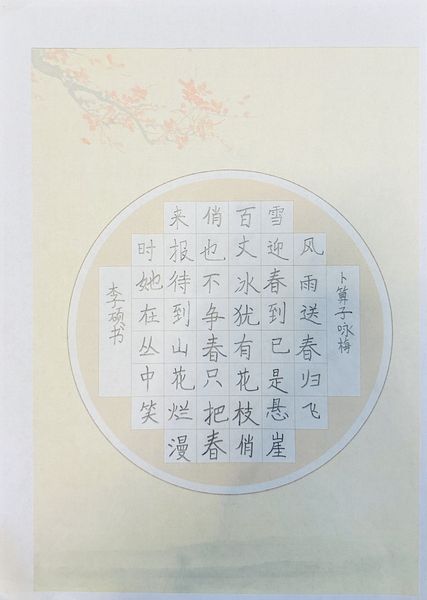 卜算子咏梅
风雨送春归飞
雪迎春到已是悬崖
百丈冰犹有花枝俏
俏也不争春只把春
来报待到山花烂漫
时她在丛中笑
李硕书